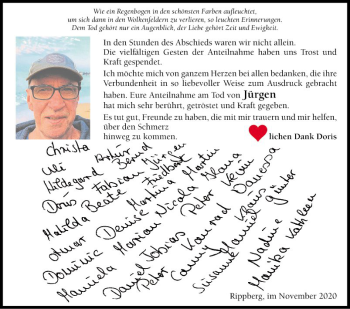 Wie ein Regenbogen in den schönsten Farben aufleuchtet,
um sich dann in den Wolkenfeldern zu verlieren, so leuchten Erinnerungen.
Dem Tod gehört nur ein Augenblick, der Liebe gehört Zeit und Ewigkeit.
In den Stunden des Abschieds waren wir nicht allein.
Die vielfältigen Gesten der Anteilnahme haben uns Trost und
Kraft gespendet.
Ich möchte mich von ganzem Herzen bei allen bedanken, die ihre
Verbundenheit in so liebevoller Weise zum Ausdruck gebracht
haben. Eure Anteilnahme am Tod von Jürgen
hat mich sehr berührt, getröstet und Kraft gegeben.
Es tut gut, Freunde zu haben, die mit mir trauern und mir helfen,
über den Schmerz
hinweg zu kommen. lichen Dank Doris
Christa
Uli Artur
Hildegard Bernd
Doris Fabian Jürgen
Matilda Beate Friedbert
Elmar Denise Martina Martin
Dominic Marian Nicola Alana
Manuela Tobias Peter Kevin Vanessa
Daniel Konrad Klaus
Peter Manuel Günter
Susanne Nadine
Monika Kathleen
Rippberg, im November 2020